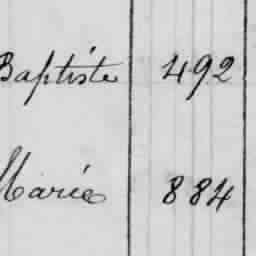 Baptiste 492
Marie 884